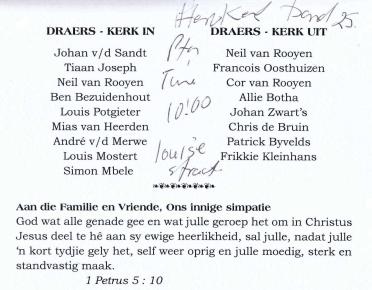 DRAERS - KERK IN
Johan v/d Sandt
Tiaan Joseph
Neil van Rooyen
Ben Bezuidenhout
Louis Potgieter
Mias van Heerden
André v/d Merwe
Louis Mostert
Simon Mbele
DRAERS - KERK UIT
Neil van Rooyen
Francois Oosthuizen
Cor van Rooyen
Allie Botha
Johan Zwart's
Chris de Bruin
Patrick Byvelds
Frikkie Kleinhans
25.
10:00
Louise
straat
Aan die Familie en Vriende, Ons innige simpatie
God wat alle genade gee en wat julle geroep het om in Christus
Jesus deel te hê aan sy ewige heerlikheid, sal julle, nadat julle
'n kort tydjie gely het, self weer oprig en julle moedig, sterk en
standvastig maak.
1 Petrus 5 : 10